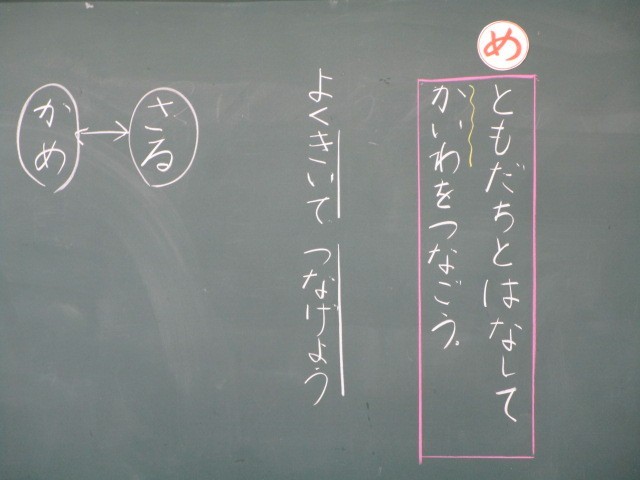 め
ともだちとはなして
かいわをつなごう。
よくきいて つなげよう
さる
かめ